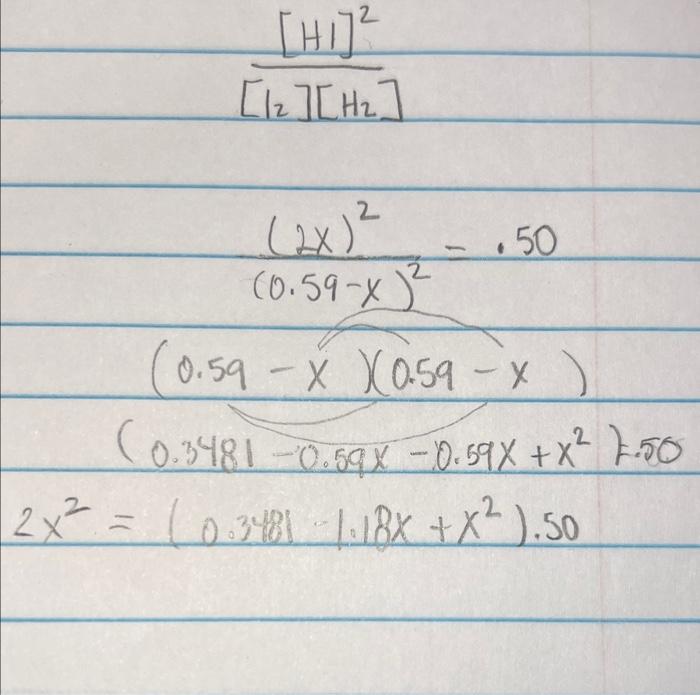 [HI]²
[I₂][H₂]
(2x)² = .50
(0.59-x)²
(0.59 - x)(0.59 - x)
(0.3481 -0.59x -0.59x + x²).50
2x² = (0.3481 -1.18x + x²).50